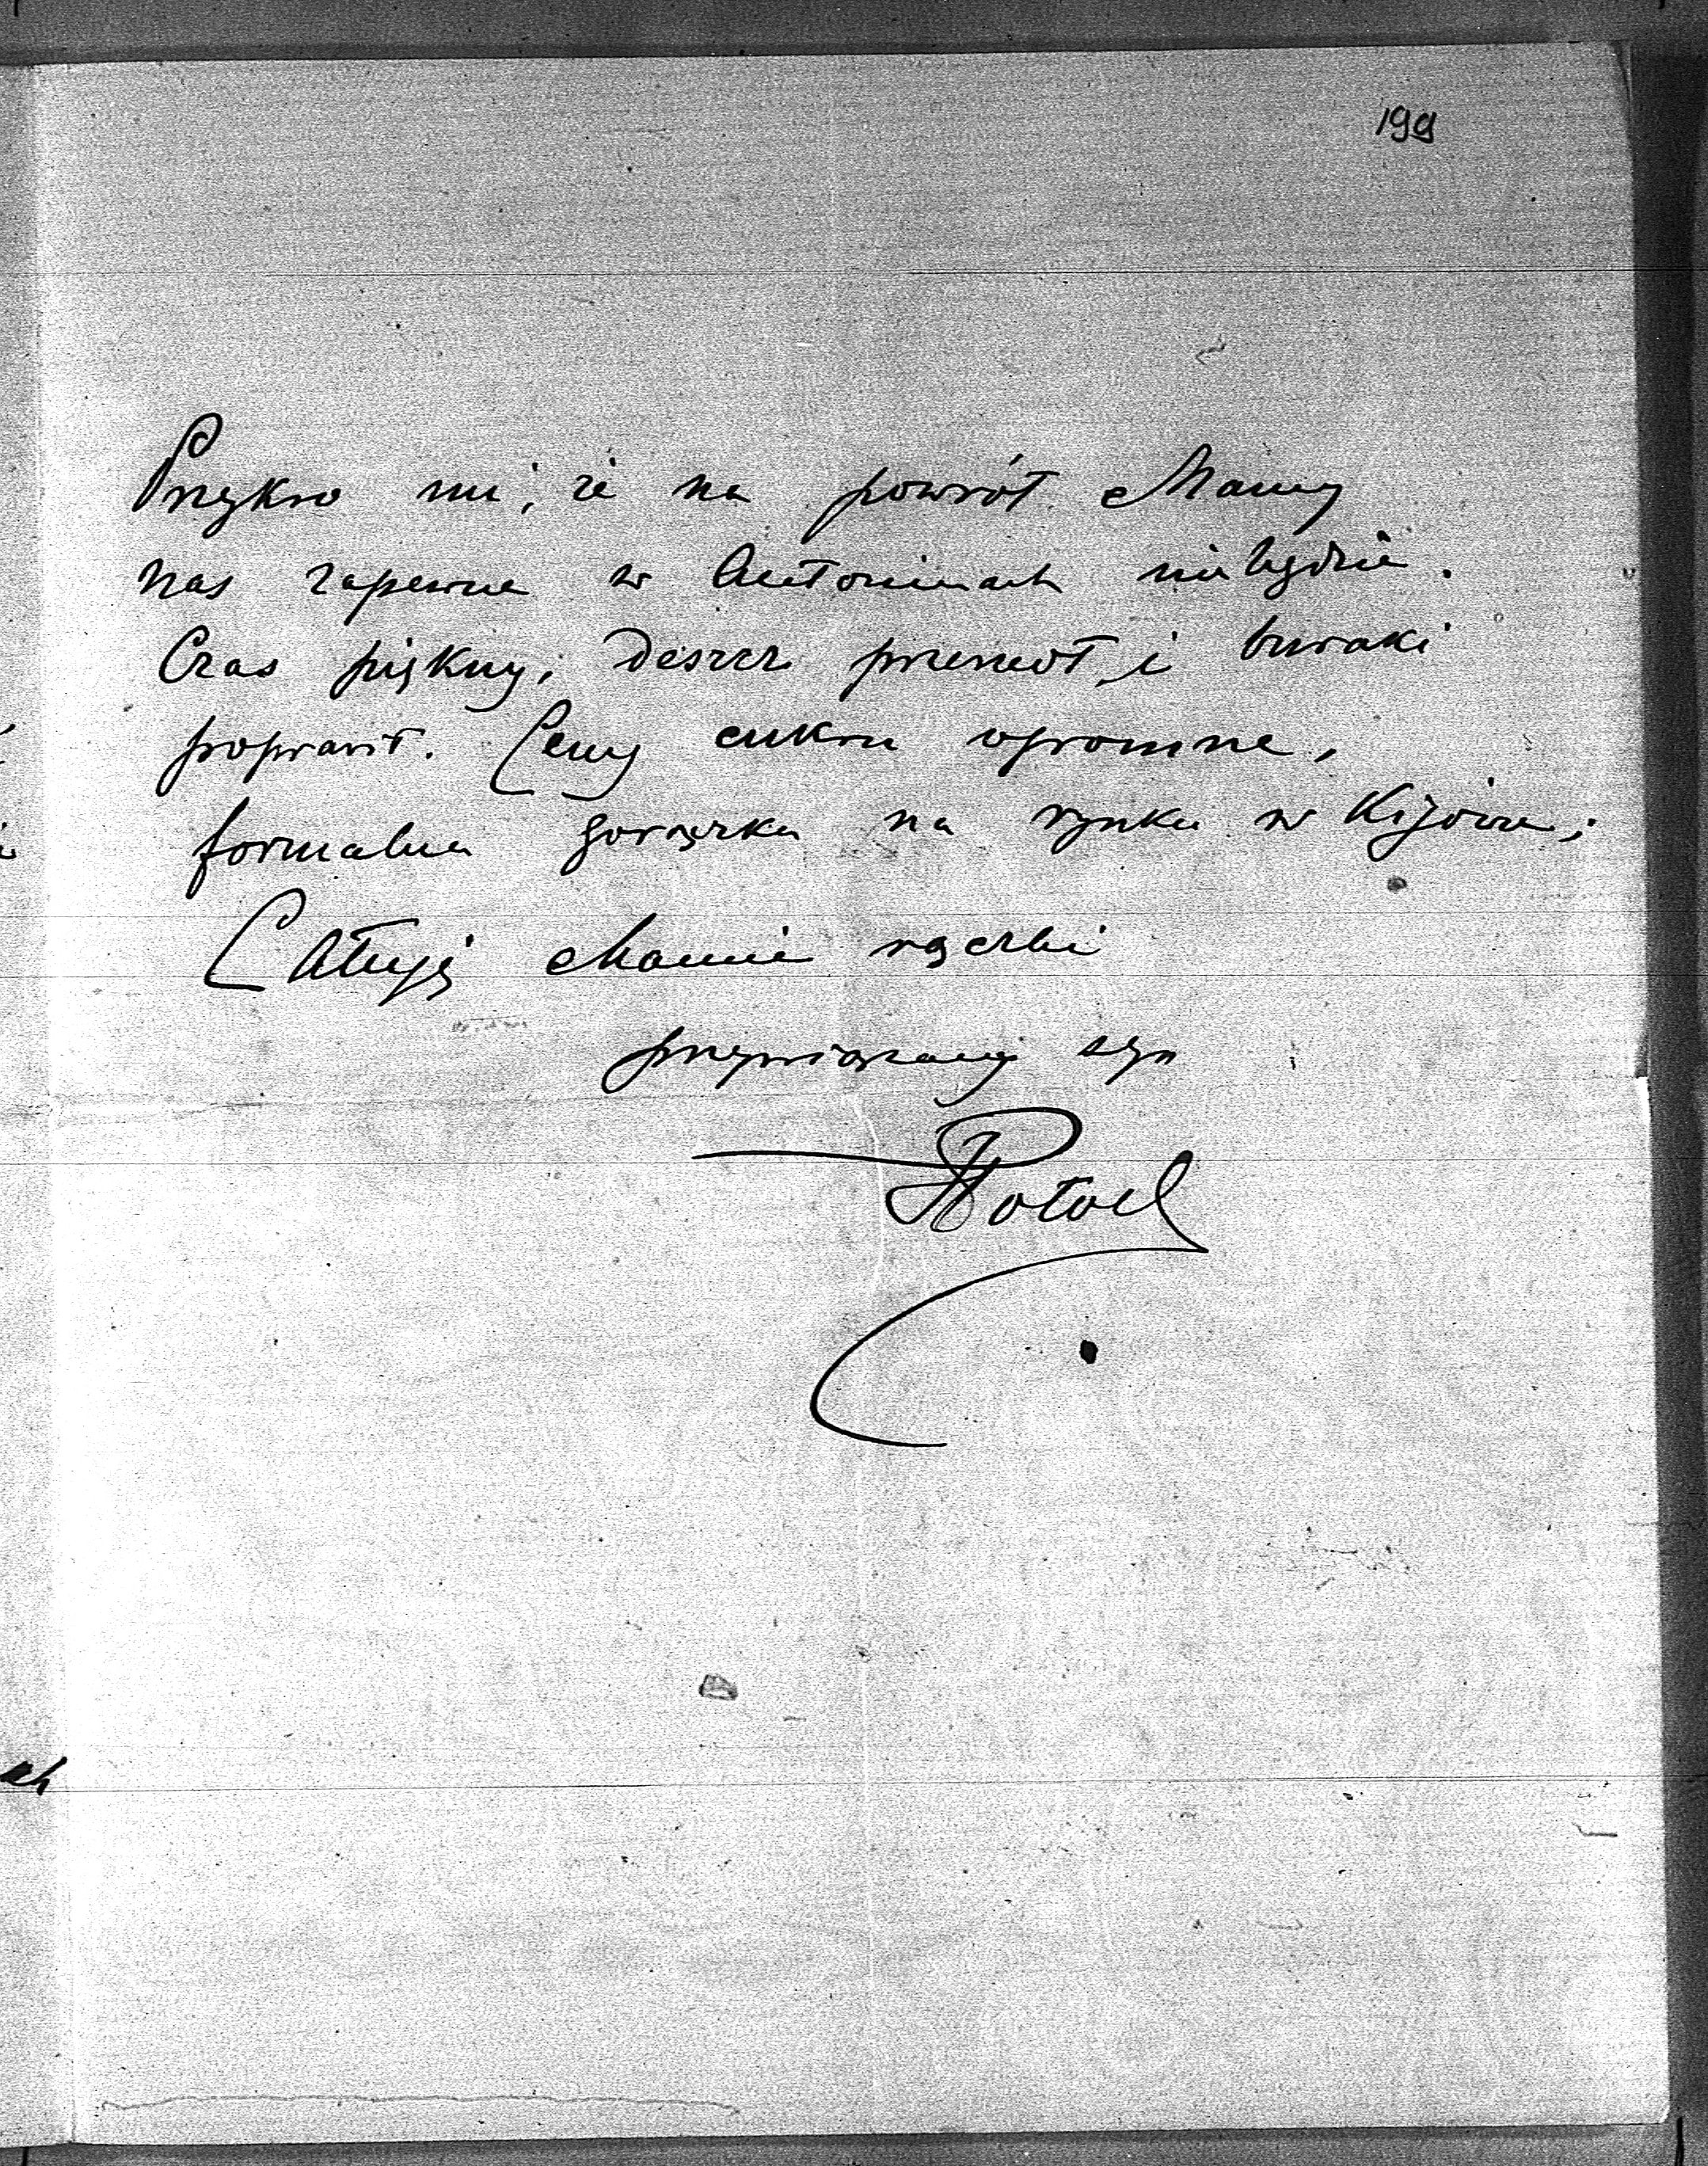 199
Przykro mi, że na powrót Mamy
nas zapewne w Antoninach nie będzie.
Czas piękny, deszcz przeszedł i buraki
poprawił. Ceny cukru ogromne,
formalna gorączka na rynku w Kijowie;
Całuję Mamie rączki
przywiązany syn
JPotocki